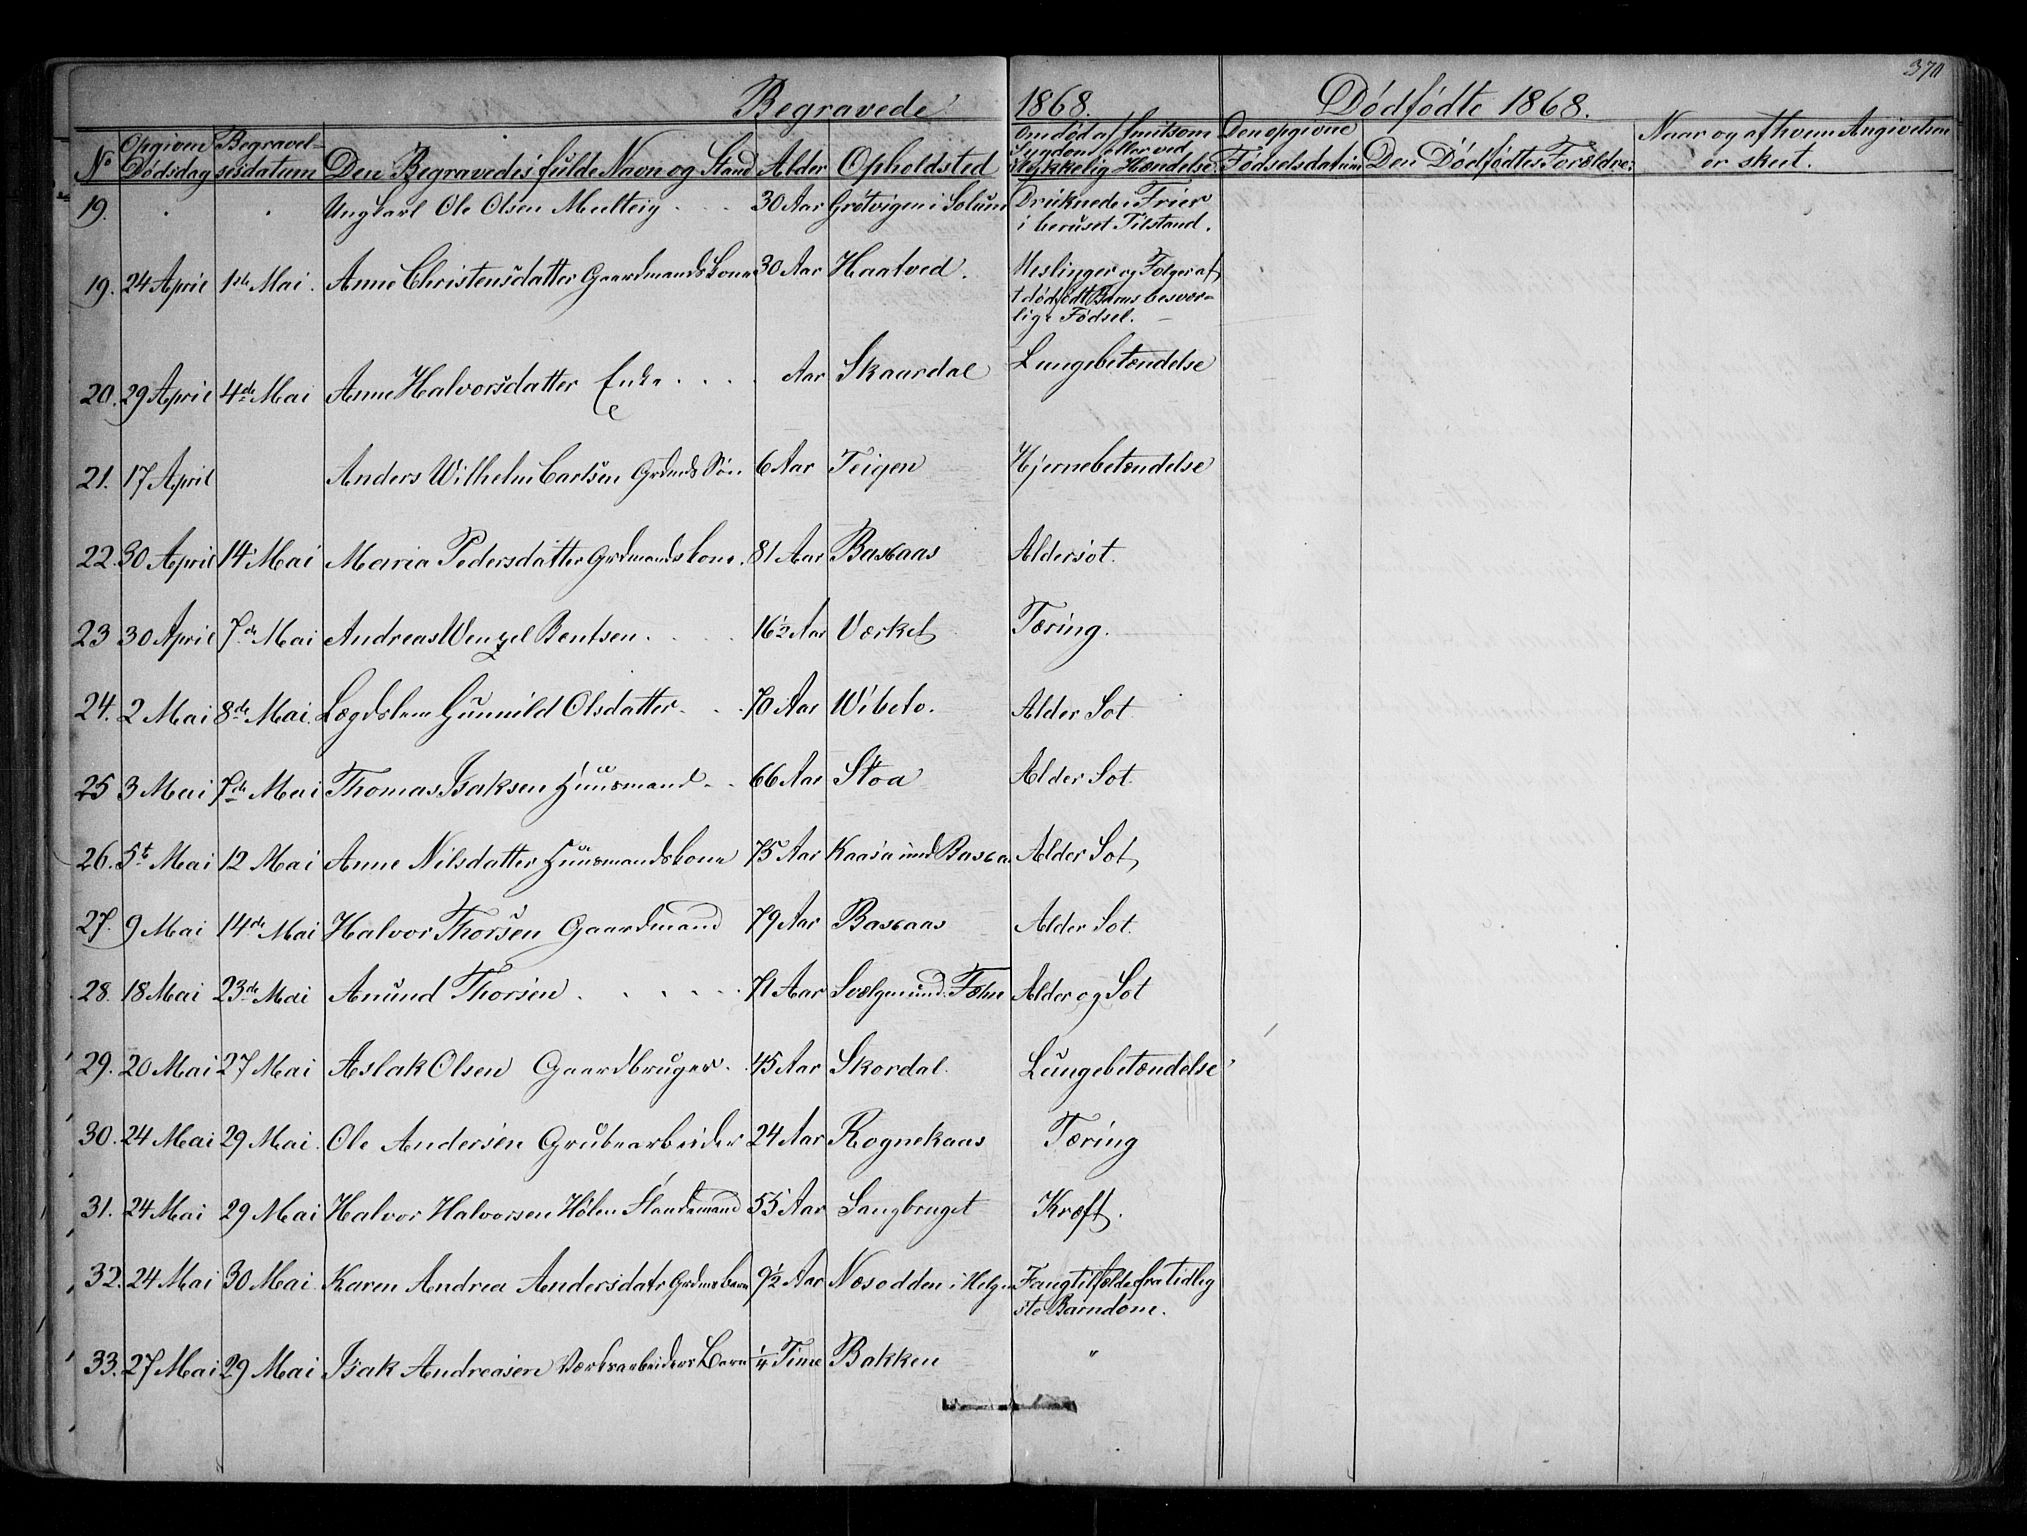 370
Begravede 1868. Dødfødte 1868.
No Opgiven Dødsdag Begravelsesdatum Den Begravedes fulde Navn og Stand Alder Opholdsted Om død af smitsom Sygdom eller ved ulykkelig Hændelse. Den opgivne Fødselsdatum Den Dødfødtes Forældre. Naar og af hvem Angivelsen er skeet.
19. Ungkarl Ole Olsen Melteig 30 Aar Grøtvigen i Solum Druknede i Frier
i beruset Tilstand.
19. 24 April 1ste Mai. Anne Christensdatter Gaardmandskone 30 Aar Haatved. Meslinger og Følger af
et dødfødt Barns besvær-
lige Fødsel.
20. 29 April 4de Mai Anne Halvorsdatter Enke Aar Skaardal Lungebetændelse
21. 17 April Anders Wilhelm Carlsen Grdmds Søn 6 Aar Teigen Hjernebetændelse
22. 30 April 14 Mai Maria Pedersdatter Grdmandskone. 81 Aar Baskaas Aldersot.
23 30 April 7de Mai Andreas Wenzel Bentsen. 16½ Aar Værket Tæring.
24. 2 Mai 8de Mai. Lægdslem Gunnild Olsdatter 70 Aar Wibeto. Alder Sot
25 3 Mai 7de Mai Thomas Isaksen Huusmand 66 Aar Stoa Alder Sot.
26. 5te Mai 12 Mai Anne Nilsdatter Huusmandskone 75 Aar Kaasa und Baskaa Alder Sot
27. 9 Mai 14de Mai Halvor Thorsen Gaardmand 79 Aar Baskaas Alder Sot.
28. 18 Mai 23de Mai Anund Thorsen 71 Aar Svælgen und. Alder og Sot
29. 20 Mai 27 Mai Aslak Olsen Gaardbruger. 45 Aar Skordal. Lungebetændelse
30. 24 Mai 29 Mai. Ole Andersen Grubearbeider 24 Aar Rognekaas Tæring
31. 24 Mai 29 Mai Halvor Halvorsen Hølen Strandmand 55 Aar Saugbruget Kræft.
32. 24 Mai 30 Mai Karen Andrea Andersdatr Grdmr barn 9½ Aar Næsodden i Helgen Fangtilfælde fra tidlig
ste Barndom.
33. 27 Mai 29 Mai Isak Andreasen Værksarbeiders Barn ¼ Time Bakken "